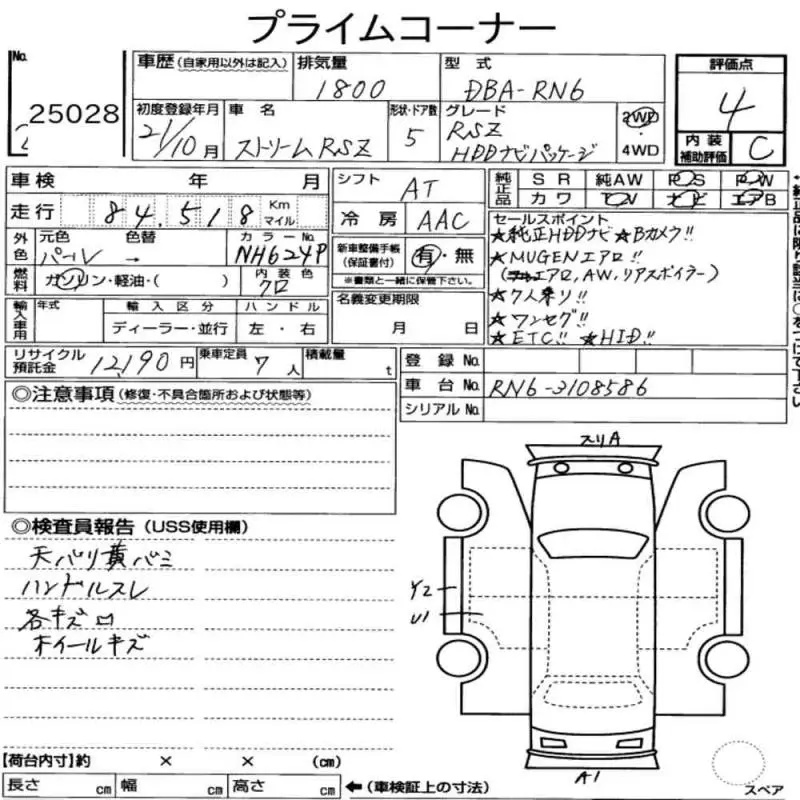 プライムコーナー
No.
25028
車歴 (自家用以外は記入)
排気量
1800
型式
DBA-RN6
評価点
4
初度登録年月
21/10月
車名
ストリームRSZ
形状・ドア数
5
グレード
RSZ
HDDナビパッケージ
2WD
4WD
内装
補助評価
C
車検 年 月
走行 84,518 Km マイル
外色
元色 色替 カラーNo.
パール → NH624P
燃料
ガソリン・軽油・( )
内装色
クロ
輸入車用
年式 輸入区分 ハンドル
ディーラー・並行 左・右
シフト AT
冷房 AAC
新車整備手帳
(保証書付)
有・無
※書類と一緒に保管下さい。
名義変更期限
月 日
純正品
SR 純AW PS PW
カワ TV ナビ エアB
セールスポイント
★純正HDDナビ ★Bカメラ!!
★MUGENエアロ!!
(エアロ, AW, リアスポイラー)
★7人乗り!!
★ワンセグ!!
★ETC!! ★HID!!
リサイクル
預託金
12,190円
乗車定員 7人
積載量 t
登録No.
車台No. RN6-3108586
シリアルNo.
◎注意事項 (修復・不具合箇所および状態等)
◎検査員報告 (USS使用欄)
天バリ黄バミ
ハンドルスレ
各キズ凹
ホイールキズ
スリA
Y2
U1
A1
スペア
【荷台内寸】約 × × (cm)
長さ cm 幅 cm 高さ cm
←(車検証上の寸法)